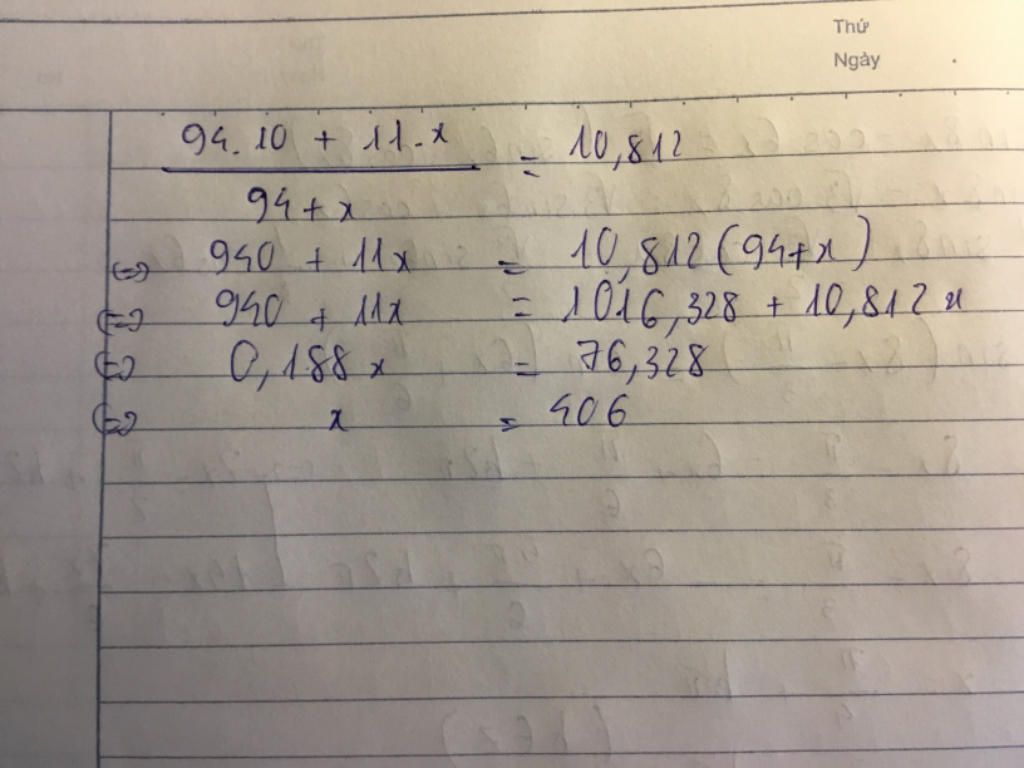 Thứ
Ngày
94.10 + 11.x / 94+x = 10,812
(=) 940 + 11x = 10,812(94+x)
(=) 940 + 11x = 1016,328 + 10,812x
(=) 0,188x = 76,328
(=) x = 406